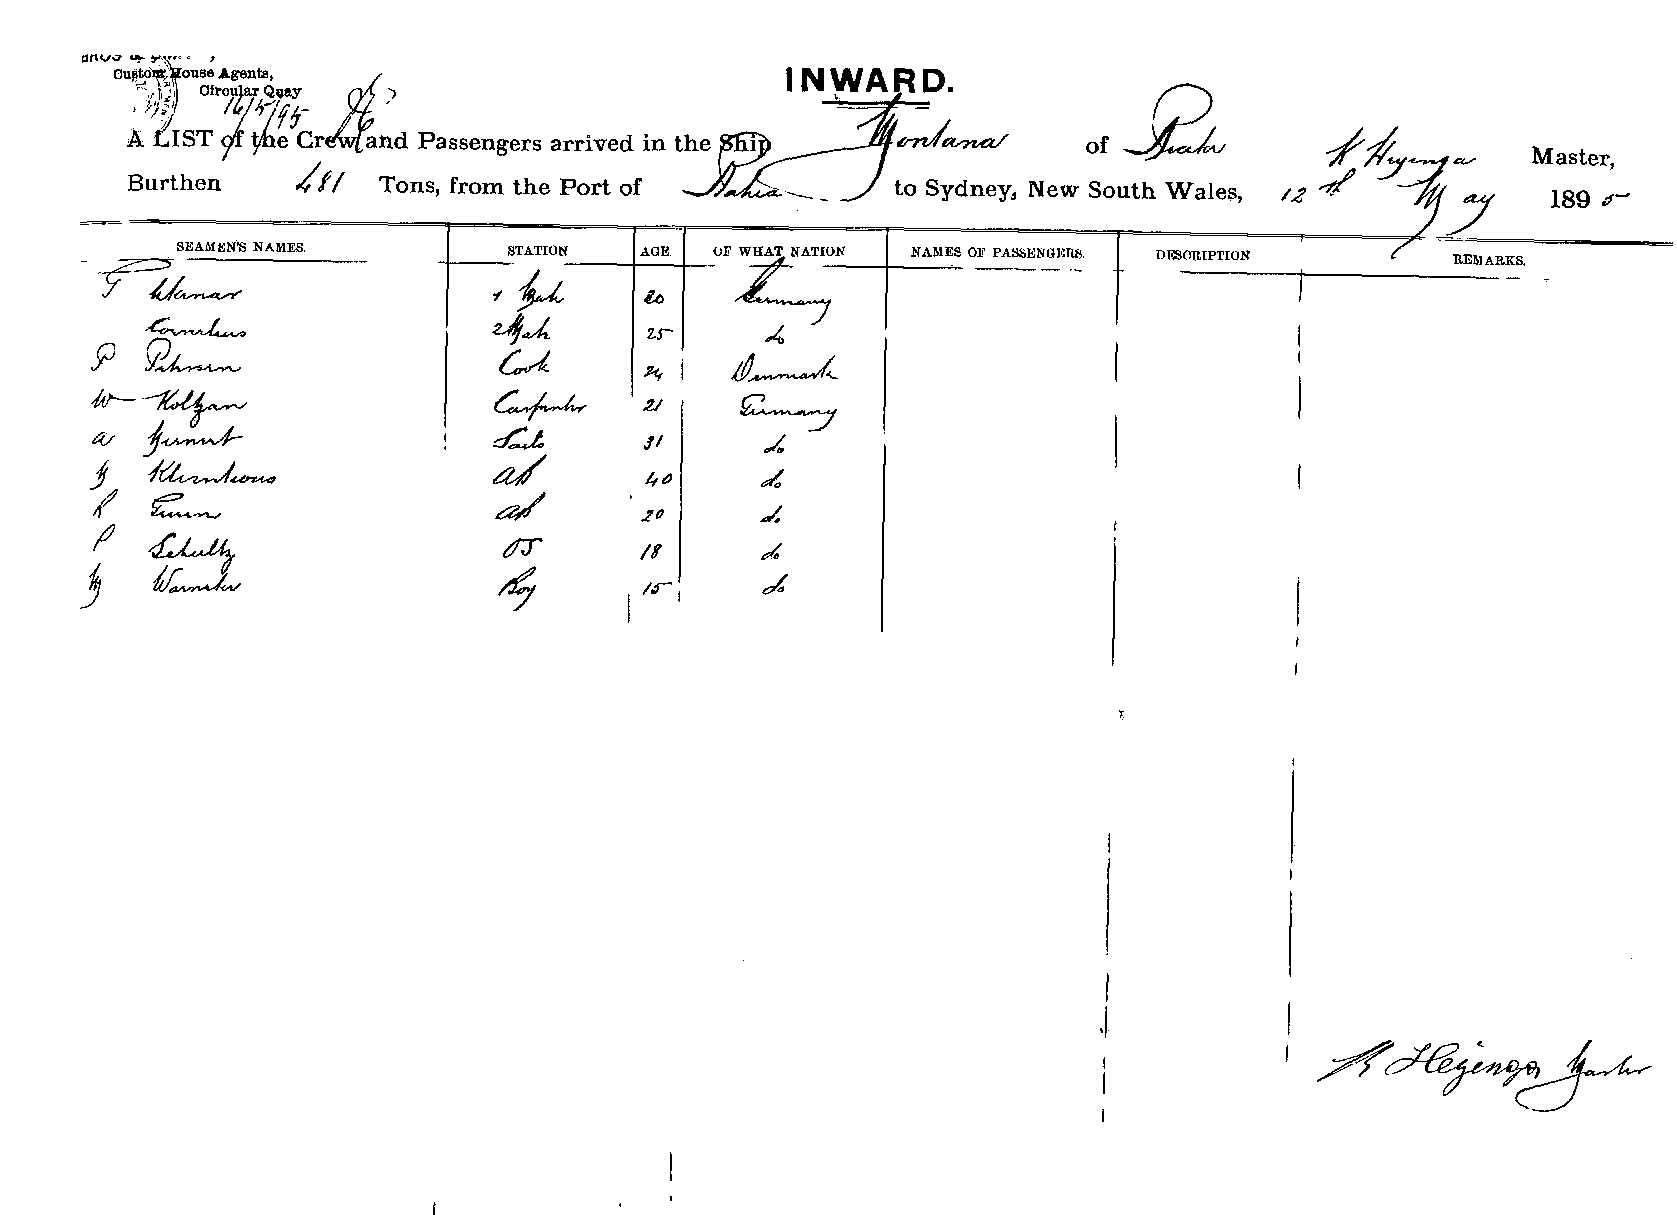 Custom House Agents,
Circular Quay
16/5/95
INWARD.
A LIST of the Crew and Passengers arrived in the Ship Montana of K Heyenga Master,
Burthen 481 Tons, from the Port of Bahia to Sydney, New South Wales, 12th May 1895
SEAMEN'S NAMES. STATION AGE. OF WHAT NATION NAMES OF PASSENGERS. DESCRIPTION REMARKS.
1 Mate 20 Germany
Cornelius 2 Mate 25 do
P Petersen Cook 24 Denmark
W Holtzan Carpenter 21 Germany
a 31 do
AB 40 do
R AB 20 do
P Schultz OS 18 do
Boy 15 do
Heyenga Master